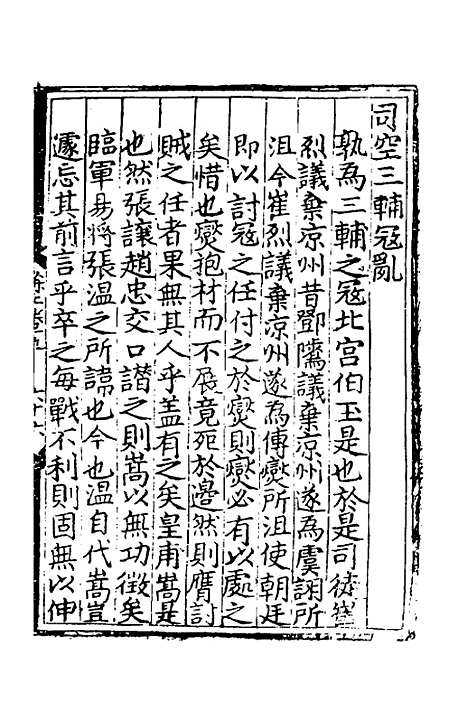 司空三輔冦亂
孰為三輔之冦北宫伯玉是也於是司徒崔
烈議棄凉州昔鄧隲議棄凉州遂為虞詡所
沮今崔烈議棄凉州遂為傅燮所沮使朝廷
即以討冦之任付之於燮則燮必有以處之
矣惜也燮抱材而不展竟死於邉然則膺討
賊之任者果無其人乎盖有之矣皇甫嵩是
也然張讓趙忠交口譖之則嵩以無功徴矣
臨軍易將張温之所諱也今也温自代嵩豈
遽忘其前言乎卒之每戰不利則固無以伸